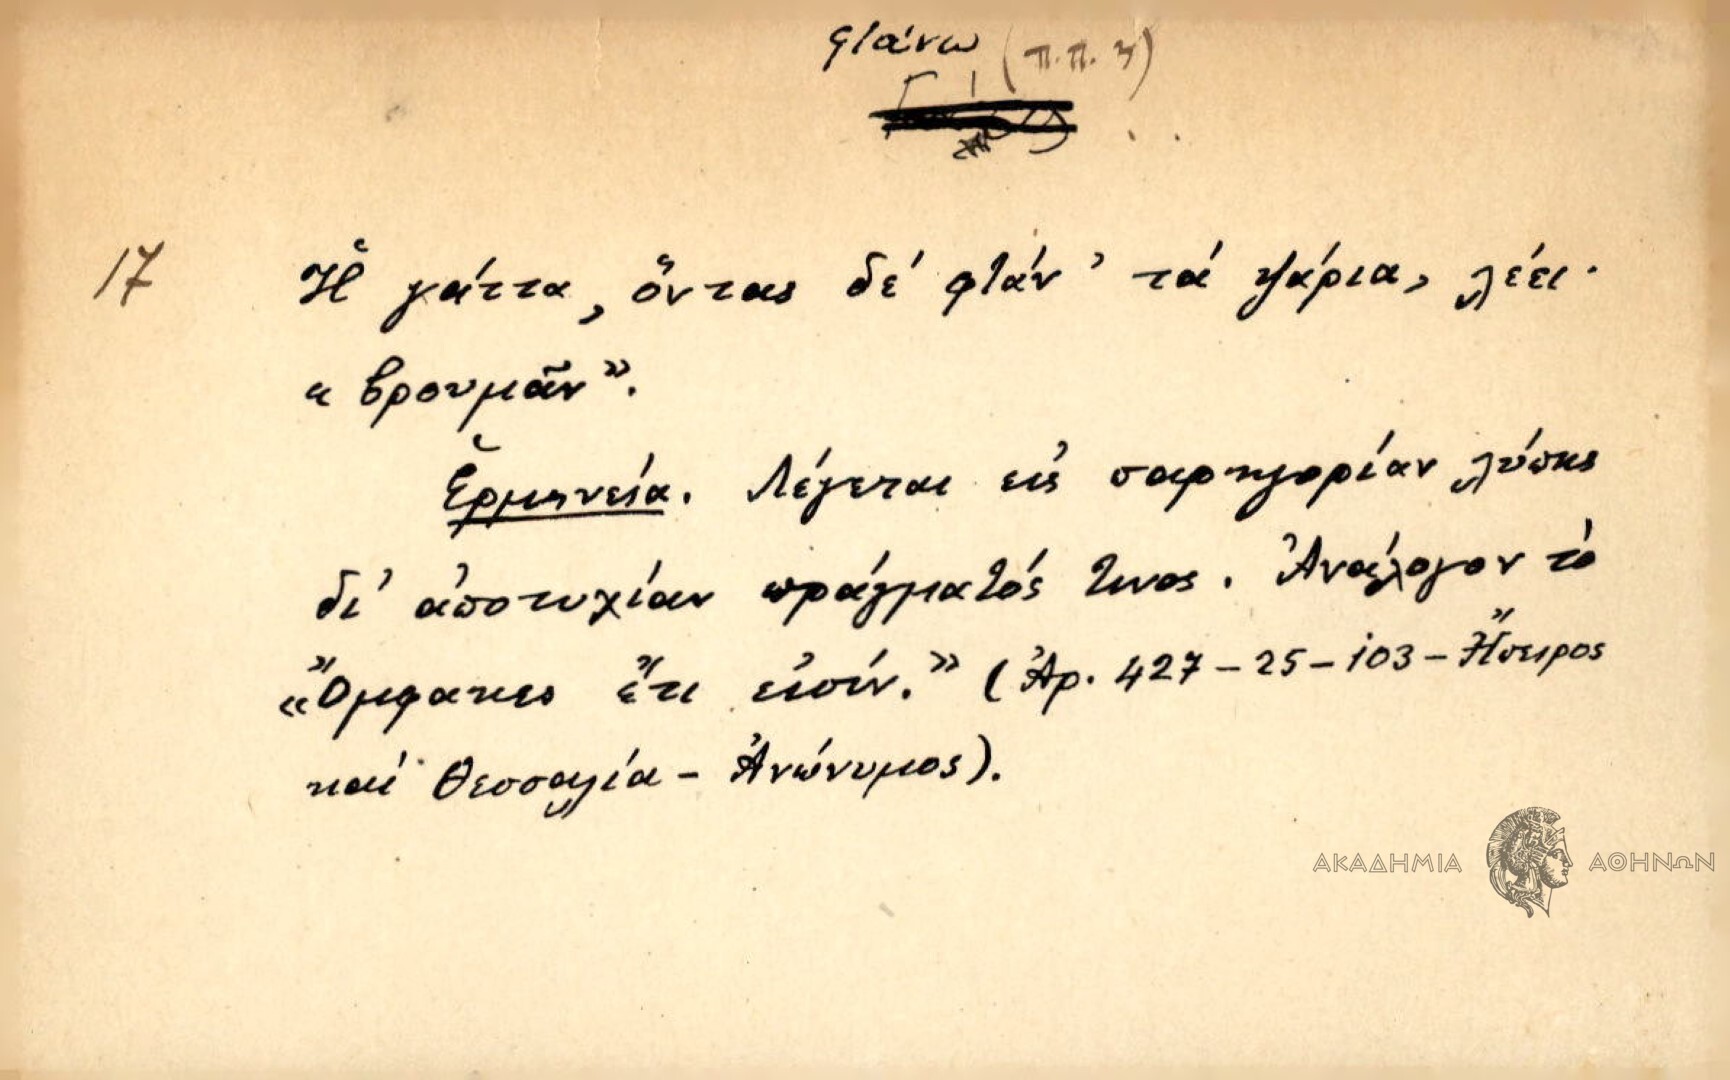 φτάνω (π.π. 3)
17 Ἡ γάττα, ὅντας δέ φτάν' τά ψάρια, λέει·
« βρουμᾶν».
Ἑρμηνεία. Λέγεται εἰς παρηγορίαν λύπης
δι' ἀποτυχίαν πράγματός τινος. Ἀνάλογον τό
«Ὄμφακες ἔτι εἰσίν.» (Ἀρ. 427-25-103-Ἤπειρος
καί Θεσσαλία - Ἀνώνυμος).
ΑΚΑΔΗΜΙΑ ΑΘΗΝΩΝ